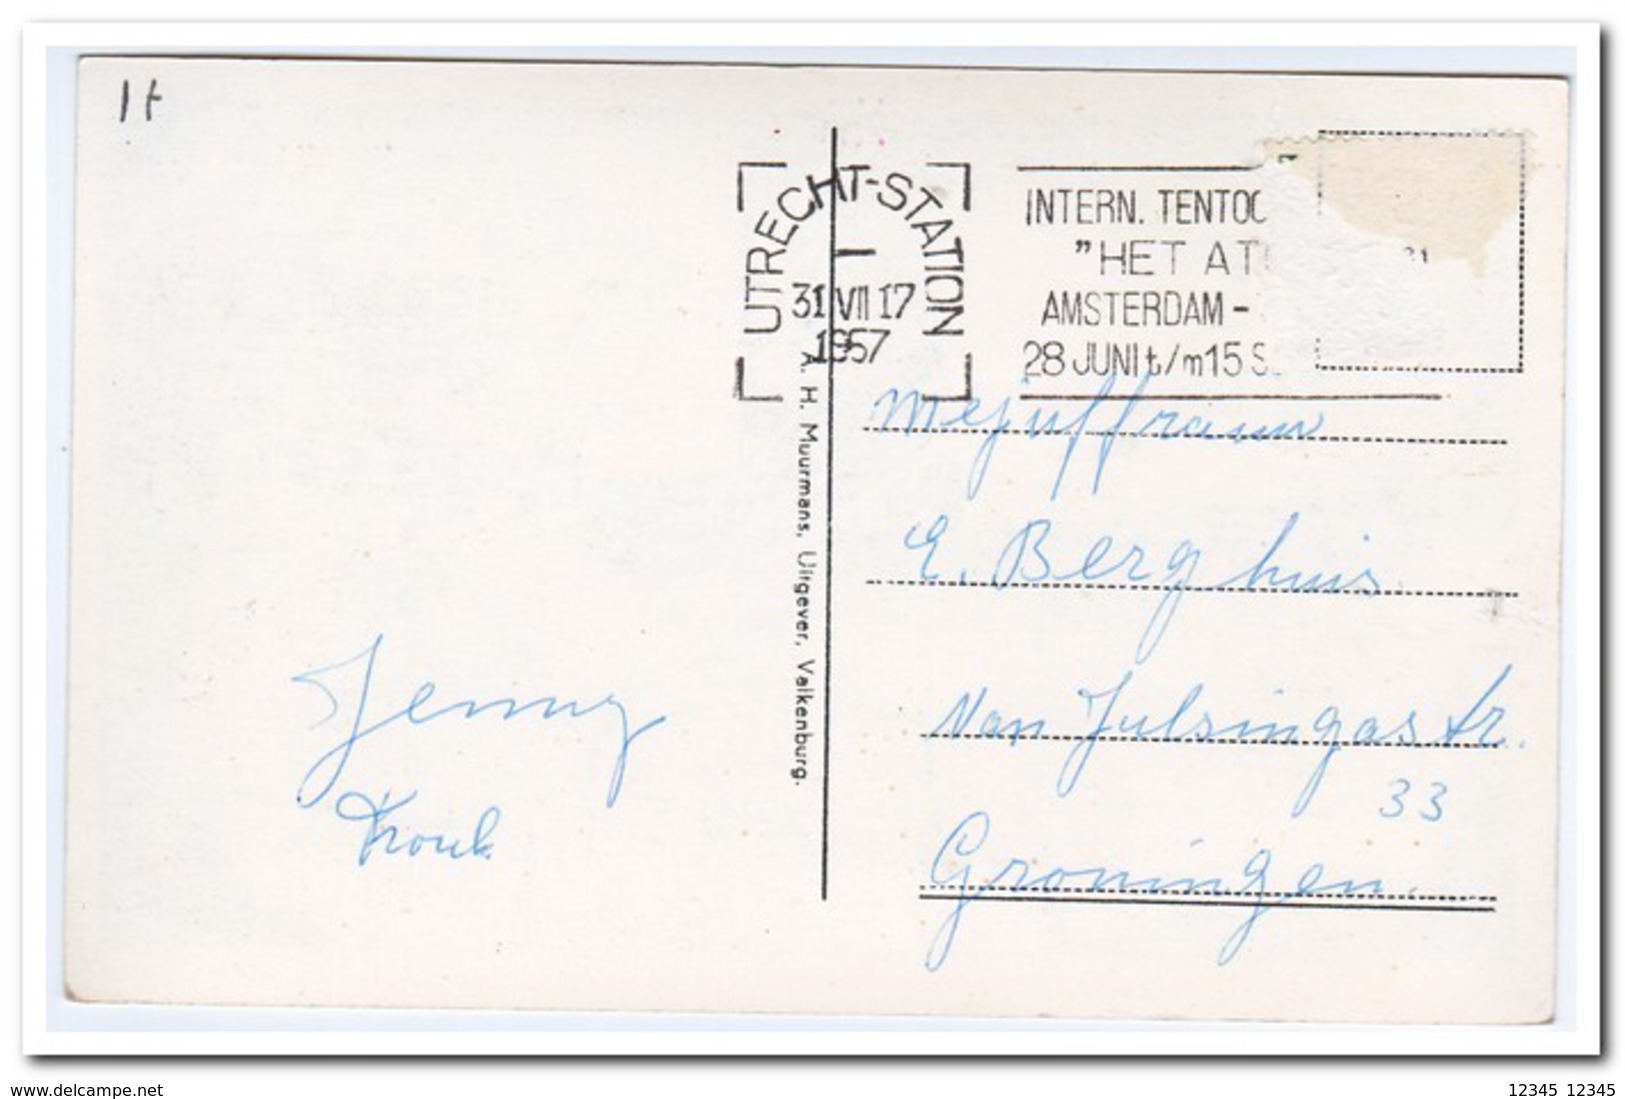 1t
UTRECHT-STATION
31 VII 17
1957
INTERN. TENTOO
"HET AT
AMSTERDAM -
28 JUNI t/m 15 S
A. H. Muurmans, Uitgever, Valkenburg.
Mejuffrauw
E. Berghuis
Van Julsingastr.
33
Groningen.
Jenny
www.delcampe.net
12345 12345